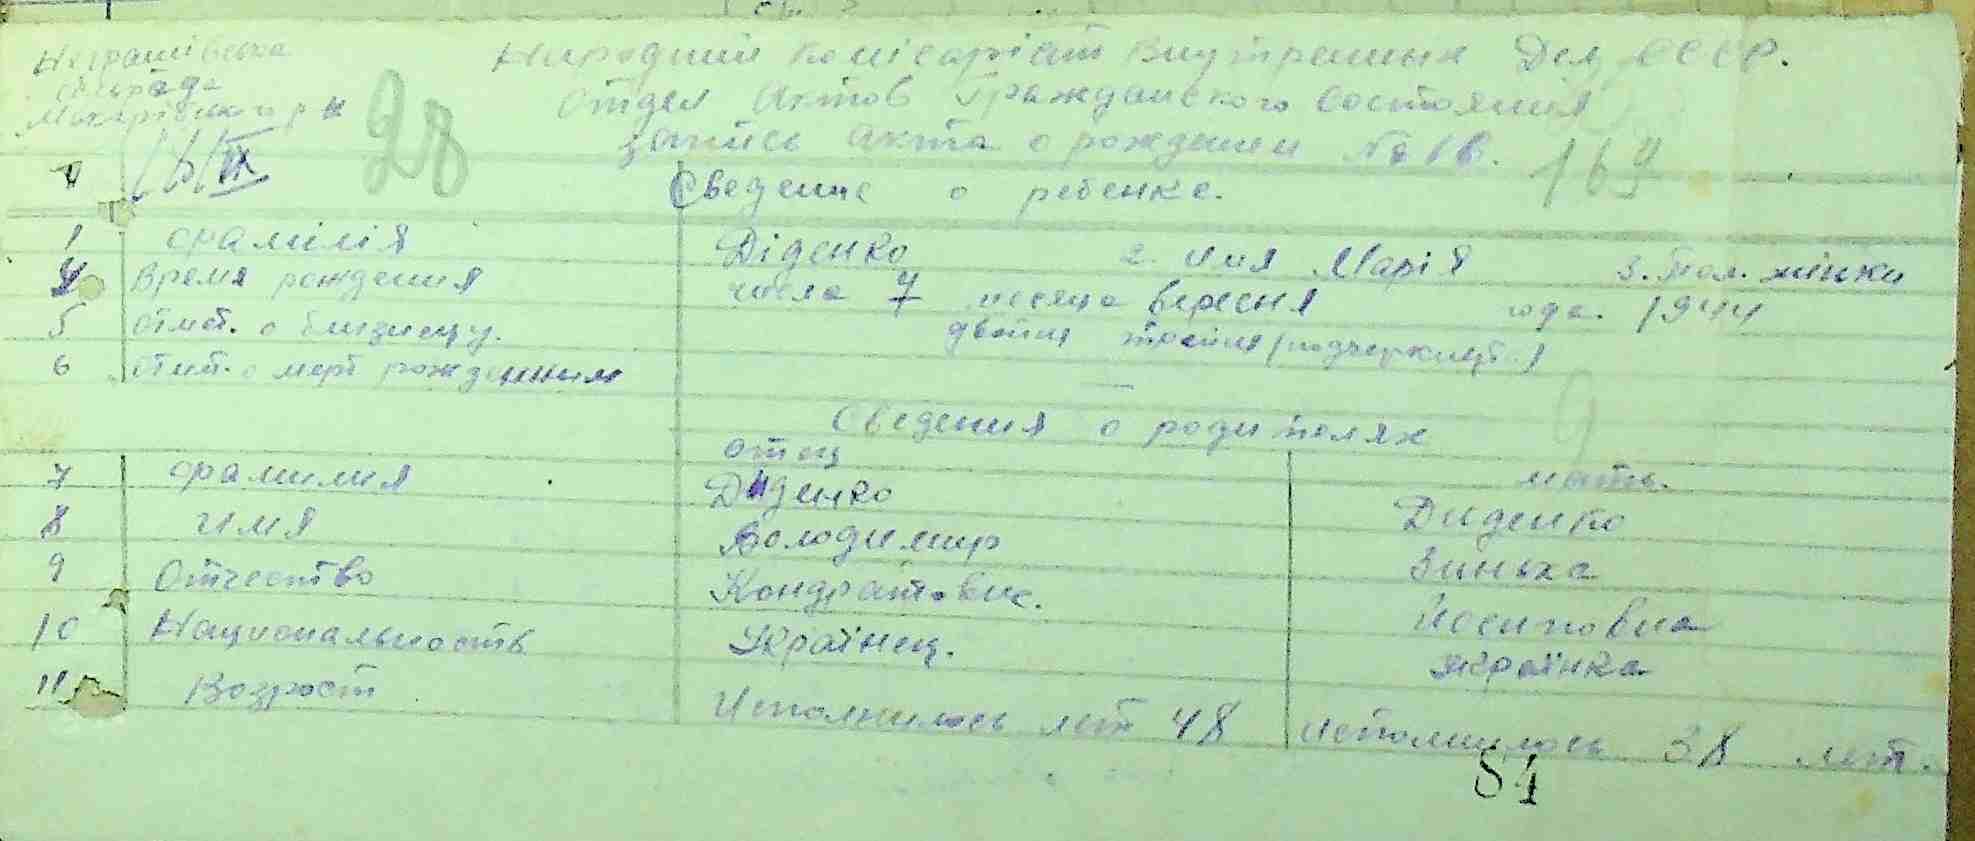 Народний комісаріат Внутренних Дел СССР.
сільрада
28
Отдел Актов Гражданского Состояния
Запись Акта о рождении № 16.
167
16/IX
Сведение о ребенке.
1 фамілія Діденко 2. Имя Марія 3. Пол. жінки
4 Время рождения число 7 месяца вересня года. 1944
5 отмет. о близнецу. двойни тройни (подчеркнут.)
6 отмет. о мерт рожденним —
Сведения о родителях
отец мать.
7 фамилия Диденко Диденко
8 Имя Володимир Зинька
9 Отчество Кондратович. Йосиповна
10 Национальность Українец. Українка
11 Возраст Исполнилось лет 48 исполнилось 38 лет.
84